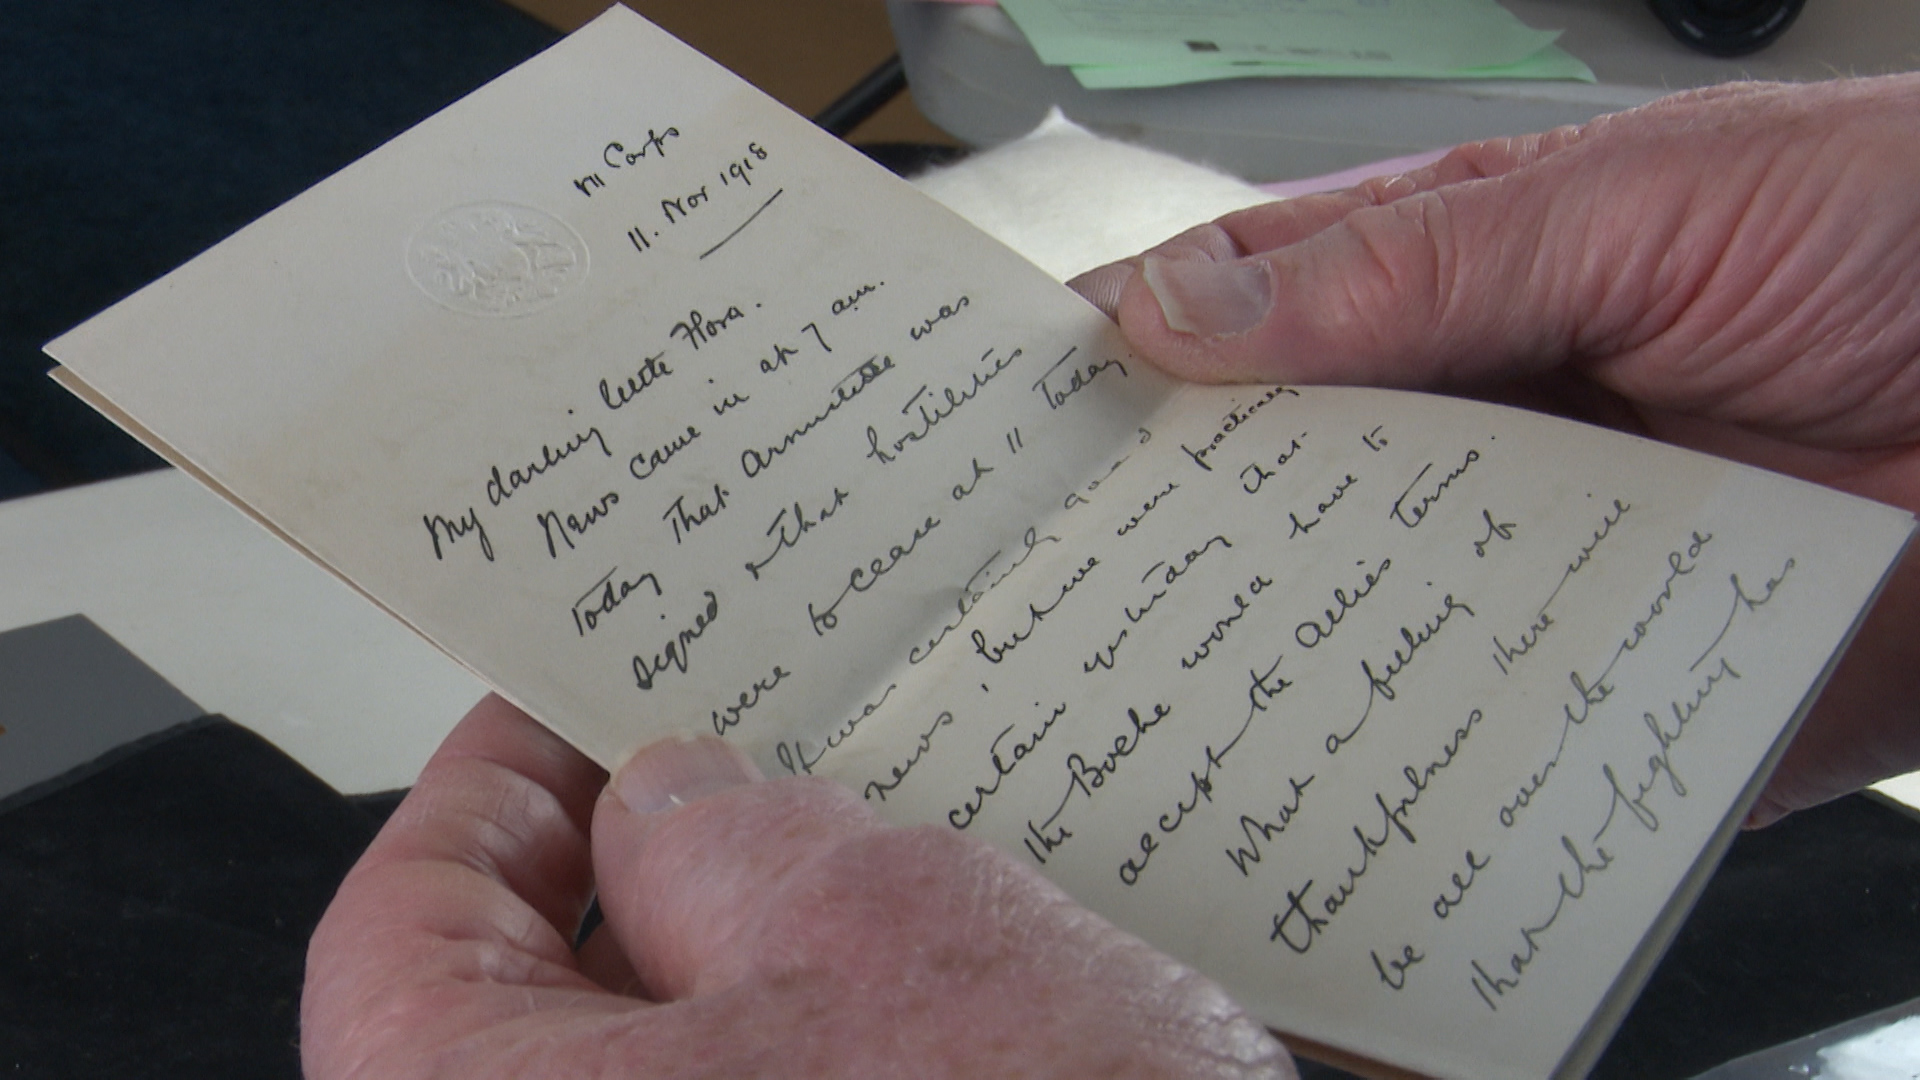 III Corps
11. Nov 1918
My darling little Flora.
News came in at 7 am.
today that Armistice was
signed & that hostilities
were to cease at 11 today.
It was certainly good
news, but we were practically
certain yesterday that
the Boche would have to
accept the Allies terms.
What a feeling of
thankfulness there will
be all over the world
that the fighting has